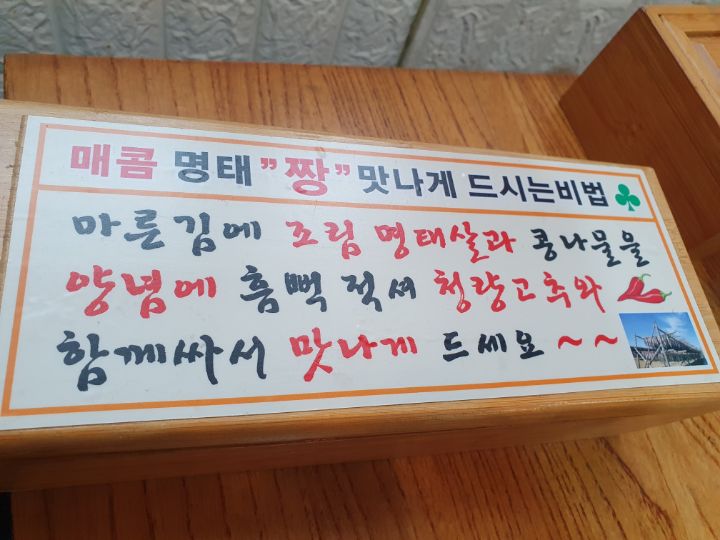 매콤 명태 "짱" 맛나게 드시는비법
마른김에 조림 명태살과 콩나물을
양념에 흠뻑 적셔 청량고추와
함께싸서 맛나게 드세요 ~ ~